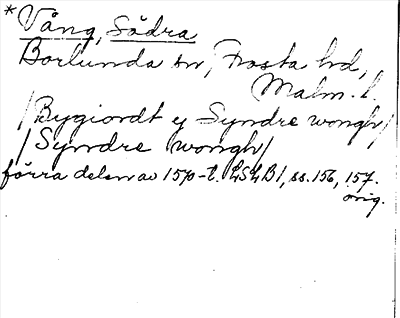 * Vång, Södra
Borlunda sn, Frosta hd,
Malm. l.
/Bygiordt y Syndre wongh/
/Syndre wongh/
förra delen av 1570-t. LSLB1, ss. 156, 157.
orig.